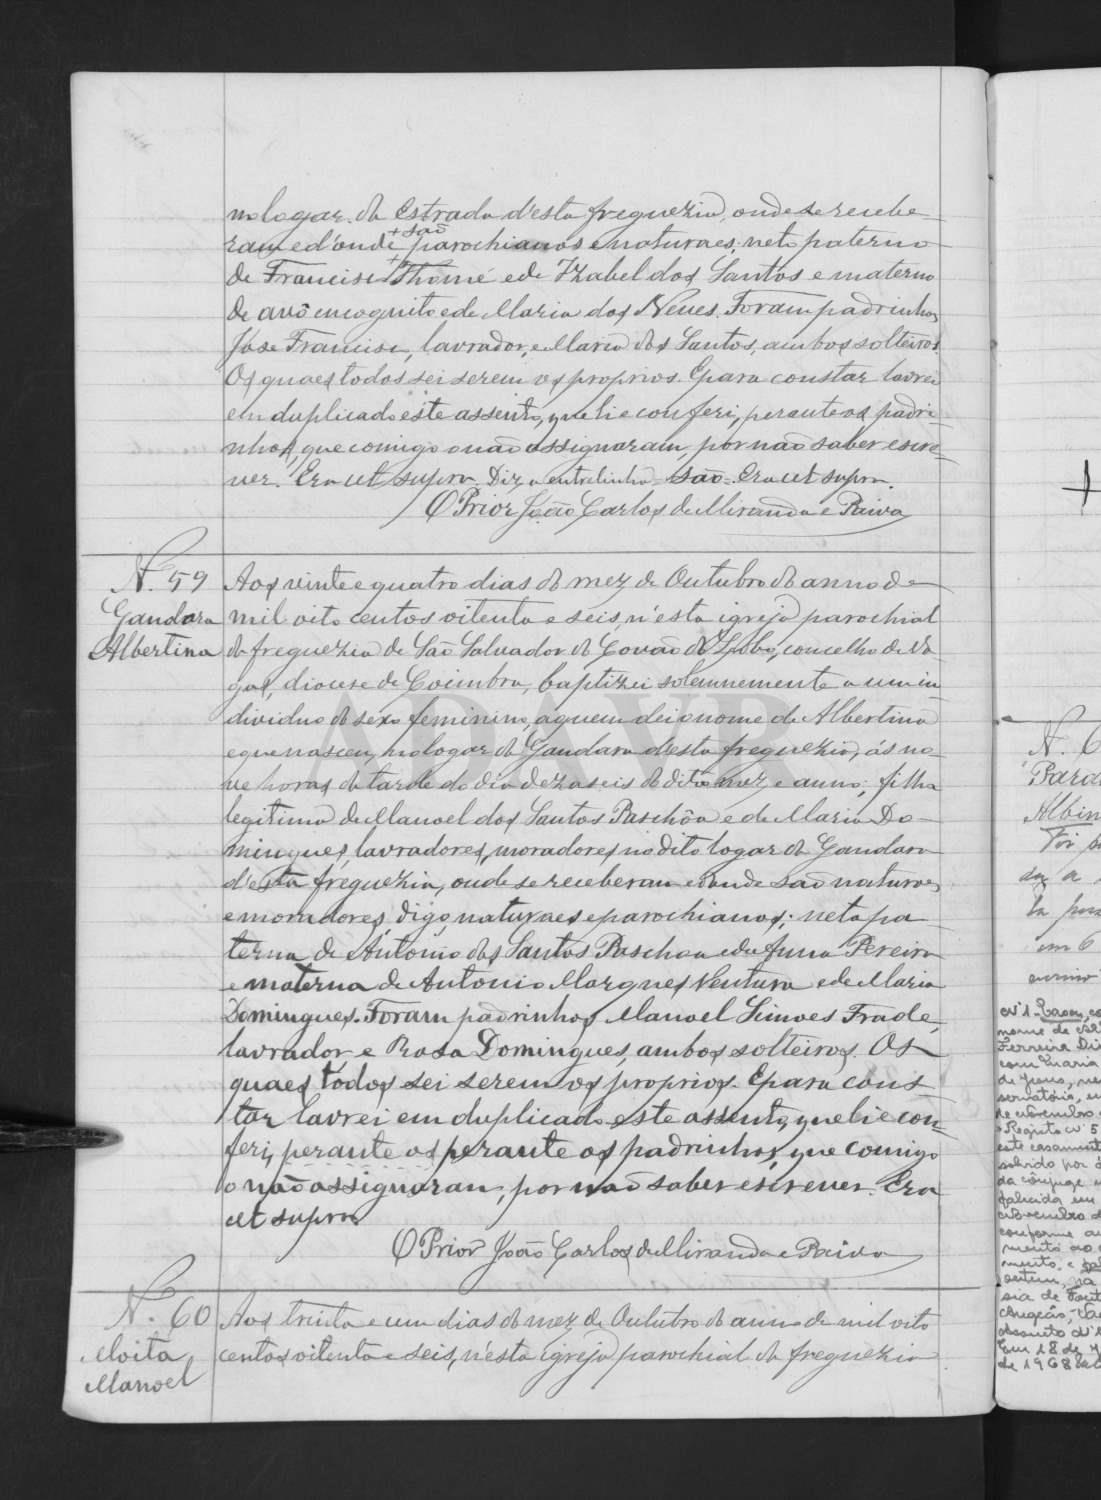 no logar da Estrada d'esta freguezia, onde se recebe-
ram e d'onde são parochianos e naturaes; neto paterno
de Francisco Thomé e de Izabel dos Santos e materno
de avô incognito e de Maria das Neves. Foram padrinhos
José Francisco, lavrador, e Maria dos Santos, ambos solteiros.
Os quaes todos sei serem os proprios. E para constar lavrei
em duplicado este assento, que li e conferi, perante os padri-
nhos, que comigo o não assignaram, por não saber escre-
ver. Era ut supra. Diz, a entrelinha = são =. Era ut supra.
O Prior João Carlos de Miranda e Paiva
N. 59
Gandara
Albertina
Aos vinte e quatro dias do mez de Outubro do anno de
mil oito centos oitenta e seis, n'esta igreja parochial
da freguezia de São Salvador do Covão do Lobo, concelho de Va-
gos, diocese de Coimbra, baptizei solemnemente a um in
dividuo do sexo feminino, a quem dei o nome de Albertina
e que nasceu, no logar da Gandara d'esta freguezia, ás no-
ve horas da tarde do dia dezaseis do dito mez e anno; filha
legitima de Manoel dos Santos Paschôa e de Maria Do-
mingues, lavradores, moradores no dito logar da Gandara
d'esta freguezia, onde se receberam e d'onde são naturaes
e moradores, digo, naturaes e parochianos; neta pa-
terna de Antonio dos Santos Paschoa e de Anna Pereira
e materna de Antonio Marques Ventura e de Maria
Domingues. Foram padrinhos Manoel Simoes Frade,
lavrador e Rosa Domingues, ambos solteiros. Os
quaes todos sei serem os proprios. E para cons
tar lavrei em duplicado este assento, que li e con-
feri, perante os perante os padrinhos, que comigo
o não assignaram, por não saber escrever. Era
ut supra
O Prior João Carlos de Miranda e Paiva
N. 60
Moita
Manoel
Aos trinta e um dias do mez de Outubro do anno de mil oito
centos oitenta e seis, n'esta igreja parochial da freguezia
ADAVR
N. 6
Para
Albin
Foi
de 1968